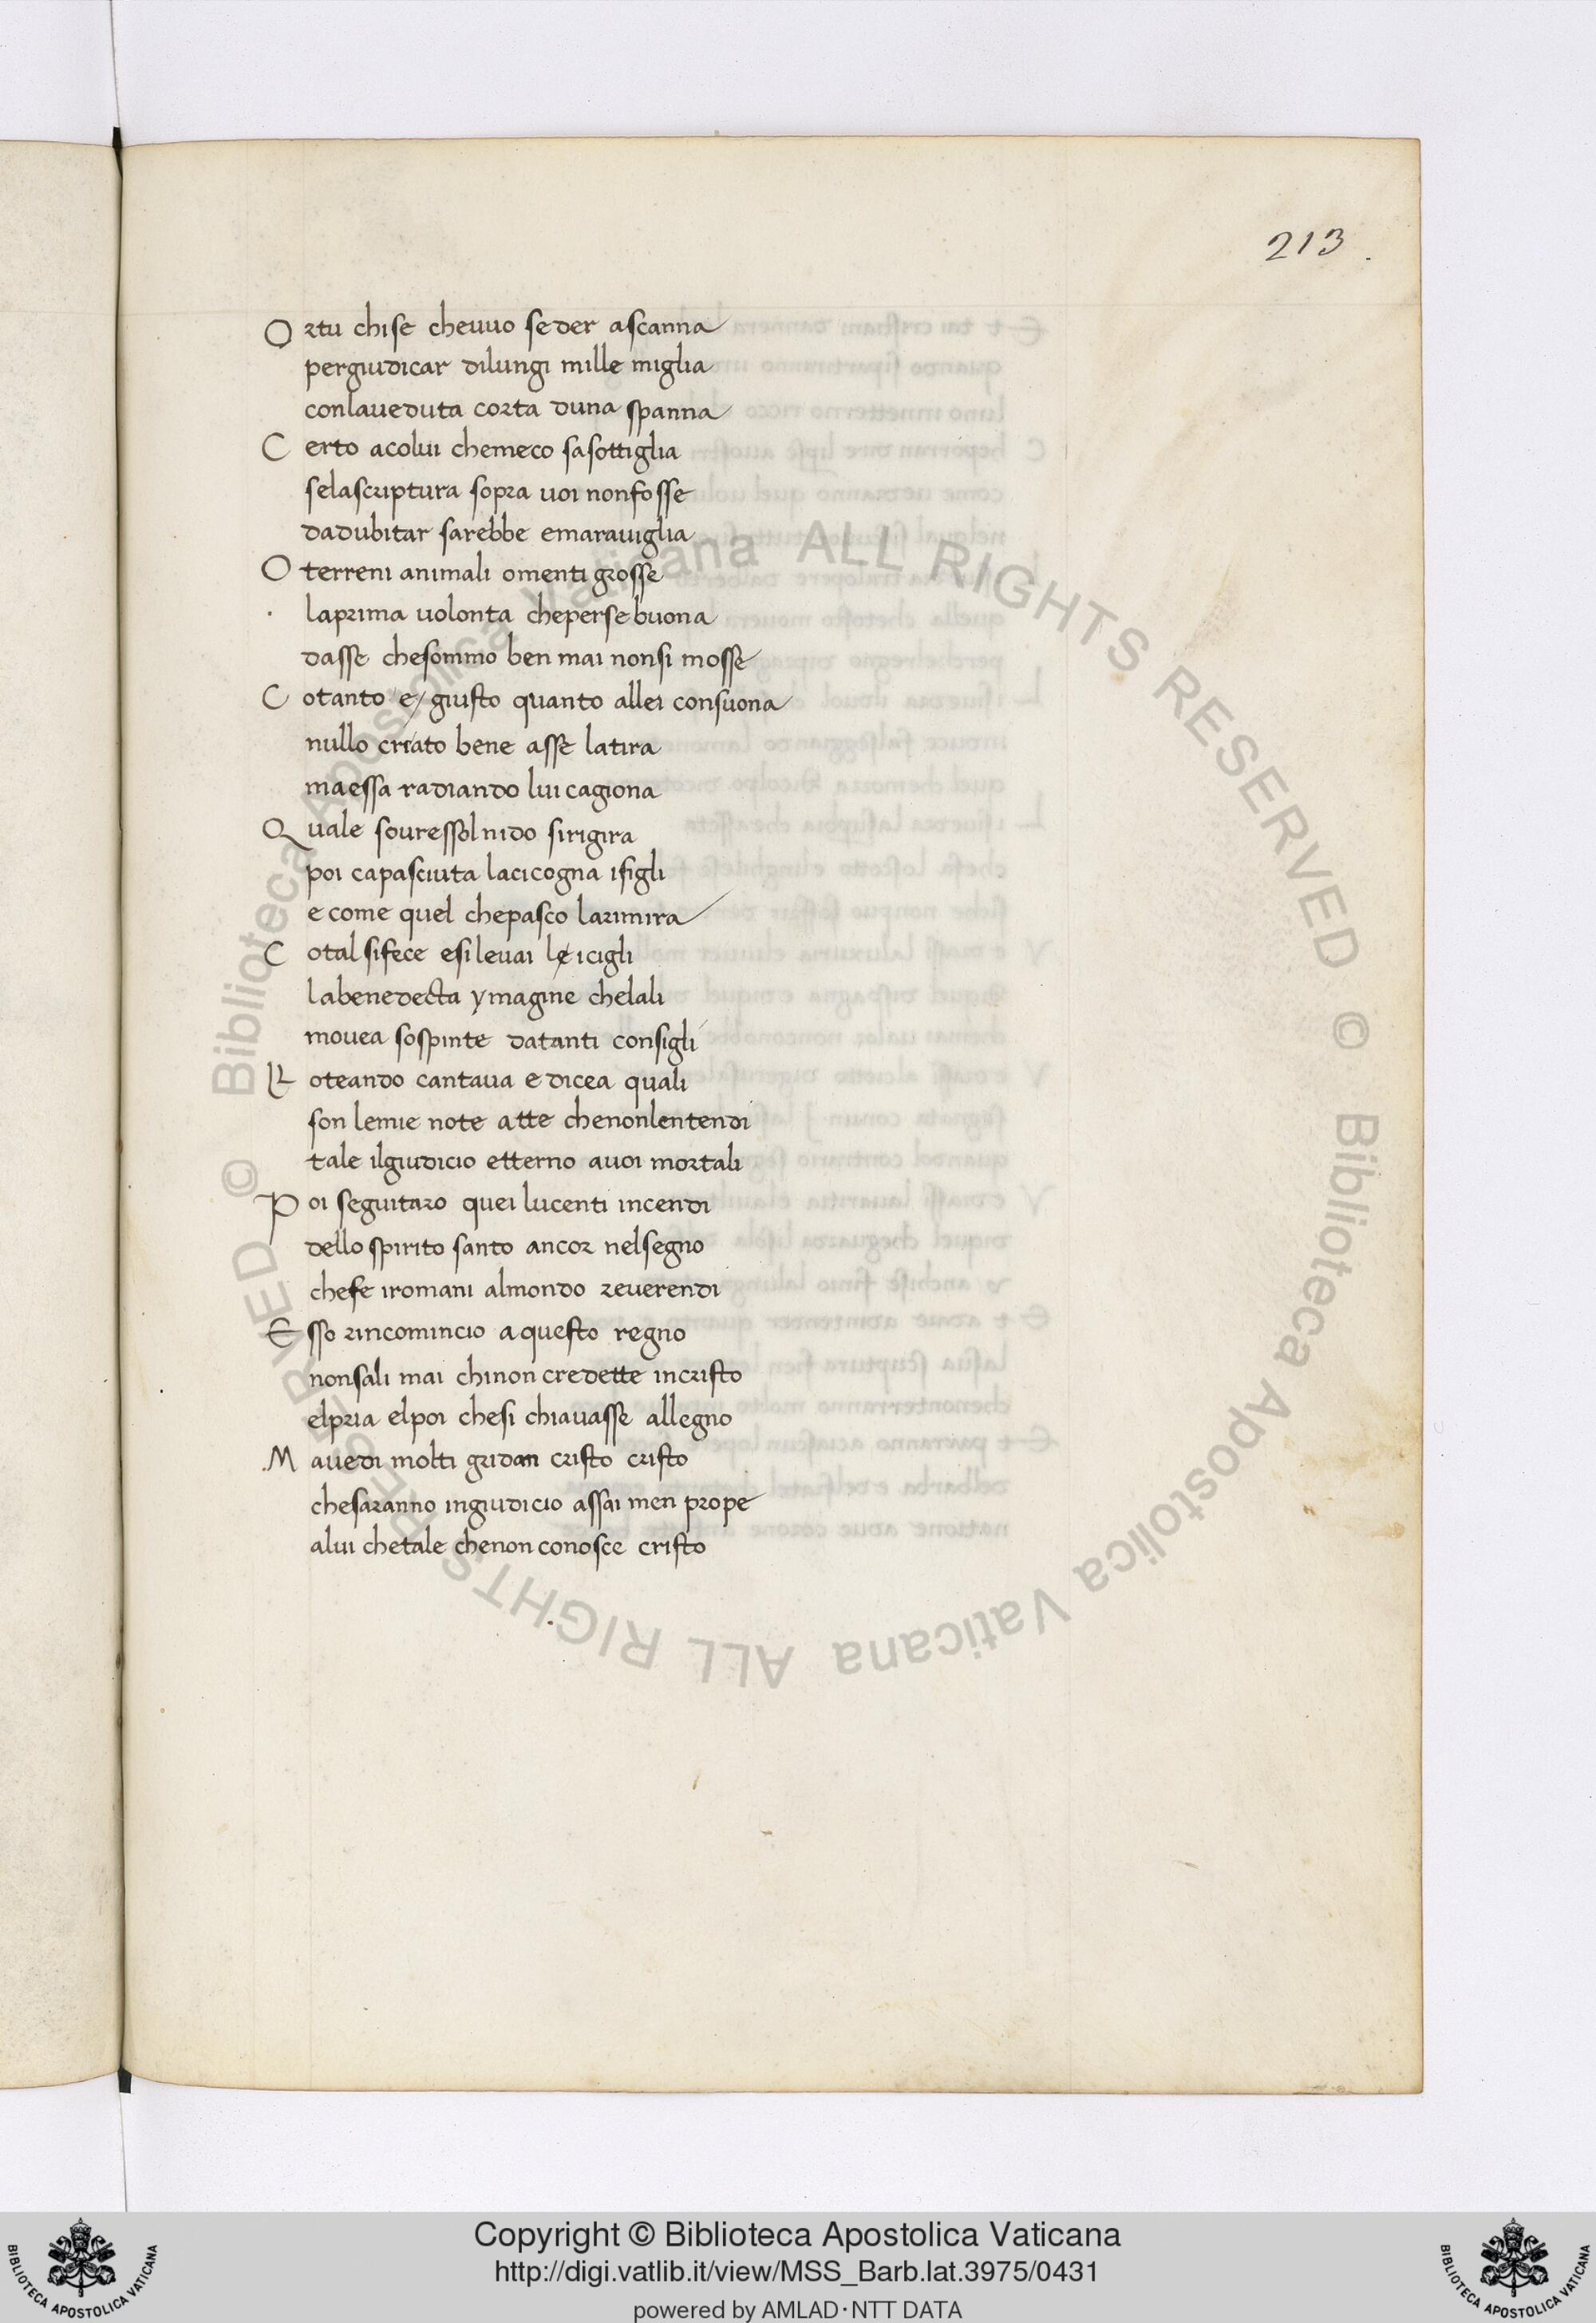 213.
Ortu chise chevuo seder ascanna
pergiudicar dilungi mille miglia
conlaueduta corta duna spanna
Certo acolui chemeco sasottiglia
selascriptura sopra uoi nonfosse
dadubitar sarebbe emarauiglia
O terreni animali omenti grosse
laprima uolonta cheperse buona
dasse chesommo ben mai nonsi mosse
Cotanto e/ giusto quanto allei consuona
nullo criato bene asse latira
maessa radiando lui cagiona
Quale souressolnido sirigira
poi capasciuta lacicogna ifigli
e come quel chepasco larimira
Cotal sifece esileuai le icigli
labenedecta ymagine chelali
mouea sospinte datanti consigli
Roteando cantaua e dicea quali
son lemie note atte chenonlentendi
tale ilgiudicio etterno auoi mortali
Poi seguitaro quei lucenti incendi
dello spirito santo ancor nelsegno
chefe iromani almondo reuerendi
Esso rincomincio a questo regno
nonsali mai chinon credette incristo
elpria elpoi chesi chiauasse allegno
Mauedi molti gridan cristo cristo
chesaranno ingiudicio assai men prope
alui chetale chenon conosce cristo
© Biblioteca Apostolica Vaticana ALL RIGHTS RESERVED © Biblioteca Apostolica Vaticana ALL RIGHTS RESERVED
Copyright © Biblioteca Apostolica Vaticana
http://digi.vatlib.it/view/MSS_Barb.lat.3975/0431
powered by AMLAD·NTT DATA
BIBLIOTECA APOSTOLICA VATICANA
BIBLIOTECA APOSTOLICA VATICANA